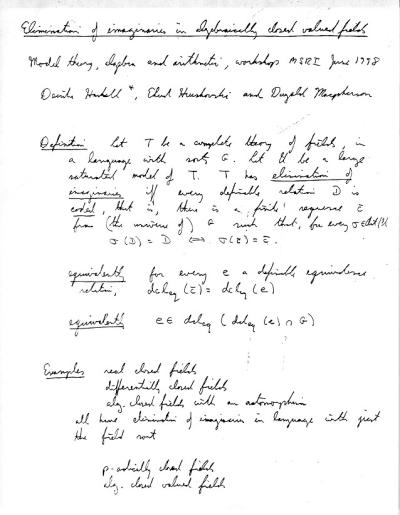 Elimination of imaginaries in algebraically closed valued fields
Model theory, algebra and arithmetic, workshop MSRI June 1998
Deirdre Haskell *, Ehud Hrushovski and Dugald Macpherson
Definition Let T be a complete theory of fields, in
a language with sorts G. Let U be a large
saturated model of T. T has elimination of
imaginaries if every definable relation D is
coded, that is, there is a finite sequence c̄
from (the universe of) G such that, for every σ ∈ Aut(U)
σ(D) = D ⇔ σ(c̄) = c̄.
equivalently for every e a definable equivalence
relation, dcl eq (c̄) = dcl eq (e)
equivalently e ∈ dcl eq (dcl eq (e) ∩ G)
Examples real closed fields
differentially closed fields
alg. closed fields with an automorphism
all have elimination of imaginaries in language with just
the field sort
p-adically closed fields
alg. closed valued fields